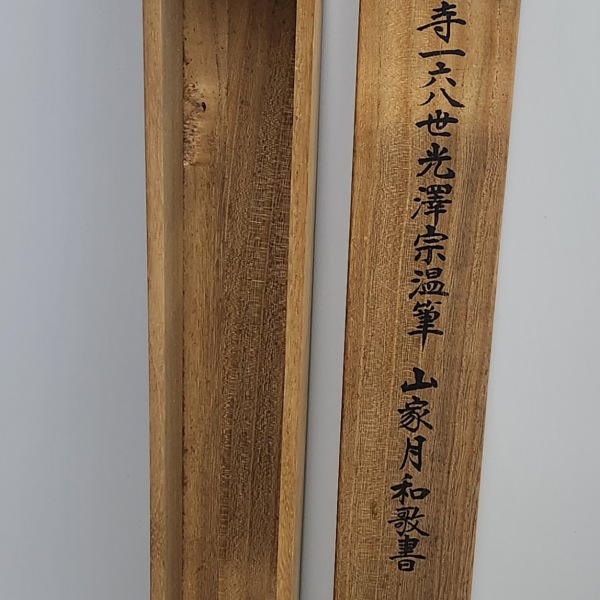 寺一六八世光澤宗温筆 山家月和歌書